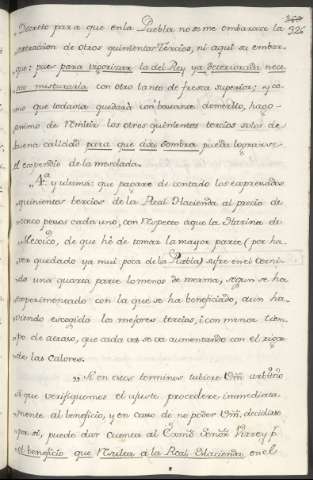 326
Decreto para que en la Puebla no se me embarase la
extraccion de otros quinientos Tercios, ni aqui se embar-
gue; pues para vigorizar la del Rey ya deteriorada nece-
sito misturarla con otro tanto de fresca superior; y co-
mo que todavia quedará con bastante demerito, hago
animo de remitir los otros quinientos tercios solos de
buena calidad para que á su sombra pueda lograrse
el expendio de la mesclada.
„4.ª y ultima: que pagaré de contado los expresados
quinientos tercios de la Real Hacienda al precio de
cinco pesos cada uno, con respecto á que la Harina de
Mexico, de que hé de tomar la mayor parte (por ha-
ver quedado ya mui poca de la Puebla) sufre en el Cerni-
do una quarta parte lo menos de merma, segun se ha
experimentado con la que se ha beneficiado, aun ha-
viendo escogido los mejores tercios, i con menos tiem-
po de atraso, que cada vez se va aumentando con el rigor
de las Calores.
„ Si en estos terminos tubiere Vm̃ arbitrio
á que verifiquemos el ajuste procederé immediata-
mente al beneficio, y en caso de no poder Vm̃ decidirlo
por sí, puede dar cuenta al Exmô Señor Virrey p.
el beneficio que resulta á la Real Hacienda en el